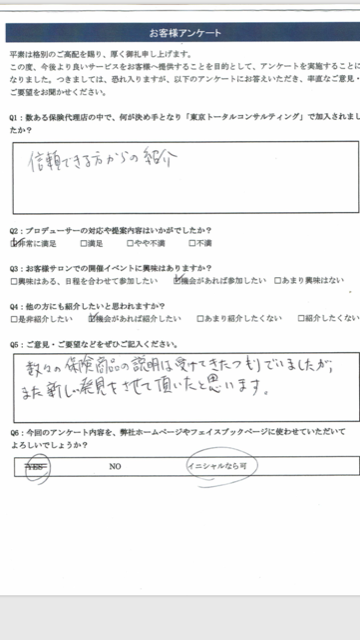 お客様アンケート
平素は格別のご高配を賜り、厚く御礼申し上げます。
この度、今後より良いサービスをお客様へ提供することを目的として、アンケートを実施することに
なりました。つきましては、恐れ入りますが、以下のアンケートにお答えいただき、率直なご意見・
ご要望をお聞かせください。
Q1：数ある保険代理店の中で、何が決め手となり「東京トータルコンサルティング」で加入されまし
たか？
信頼できる方からの紹介
Q2：プロデューサーの対応や提案内容はいかがでしたか？
☑非常に満足 □満足 □やや不満 □不満
Q3：お客様サロンでの開催イベントに興味はありますか？
□興味はある、日程を合わせて参加したい ☑機会があれば参加したい □あまり興味はない
Q4：他の方にも紹介したいと思われますか？
□是非紹介したい ☑機会があれば紹介したい □あまり紹介したくない □紹介したくない
Q5：ご意見・ご要望などをぜひご記入ください。
数々の保険商品の説明は受けてきたつもりでいましたが、
また新しい発見をさせて頂いたと思います。
Q6：今回のアンケート内容を、弊社ホームページやフェイスブックページに使わせていただいて
よろしいでしょうか？
YES NO イニシャルなら可